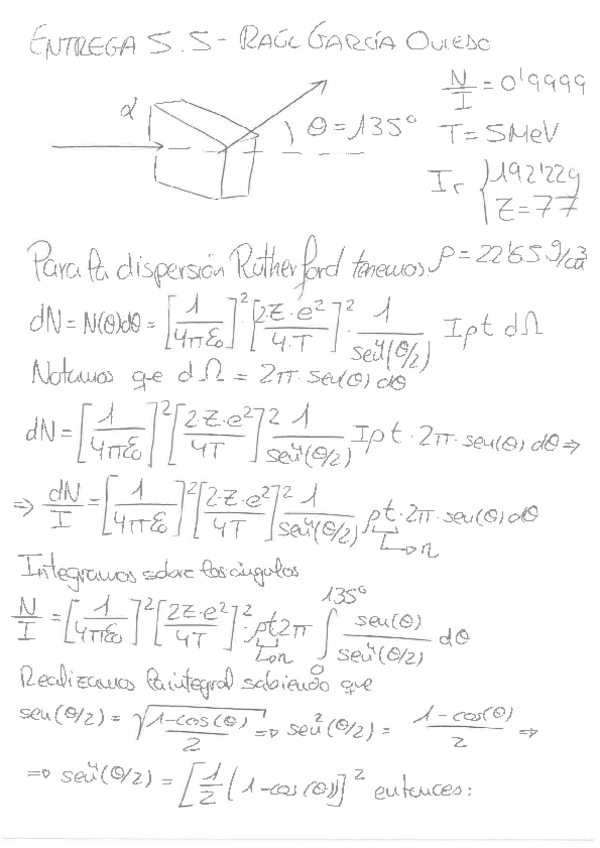 ENTREGA 5.5 - RAÚL GARCÍA OVIEDO
α
θ = 135°
N/I = 0'9999
T = 5 MeV
Ir { 192'22g
Z = 77
ρ = 22'65 g/cm³
Para la dispersión Rutherford tenemos
dN = N(θ)dθ = [1/4πε₀]² [2·Z·e²/4·T]² · 1/sen⁴(θ/2) I ρ t dΩ
Notamos que dΩ = 2π · sen(θ) dθ
dN = [1/4πε₀]² [2·Z·e²/4T]² 1/sen⁴(θ/2) I ρ t · 2π · sen(θ) dθ ⇒
⇒ dN/I = [1/4πε₀]² [2·Z·e²/4T]² 1/sen⁴(θ/2) ρt · 2π · sen(θ) dθ
→ n
Integramos sobre los ángulos
N/I = [1/4πε₀]² [2Z·e²/4T]² · ρt 2π ∫₀^135° sen(θ)/sen⁴(θ/2) dθ
→ n
Realizamos la integral sabiendo que
sen(θ/2) = √(1-cos(θ)/2) ⇒ sen²(θ/2) = 1-cos(θ)/2 ⇒
⇒ sen⁴(θ/2) = [1/2 (1-cos(θ))]² entonces: